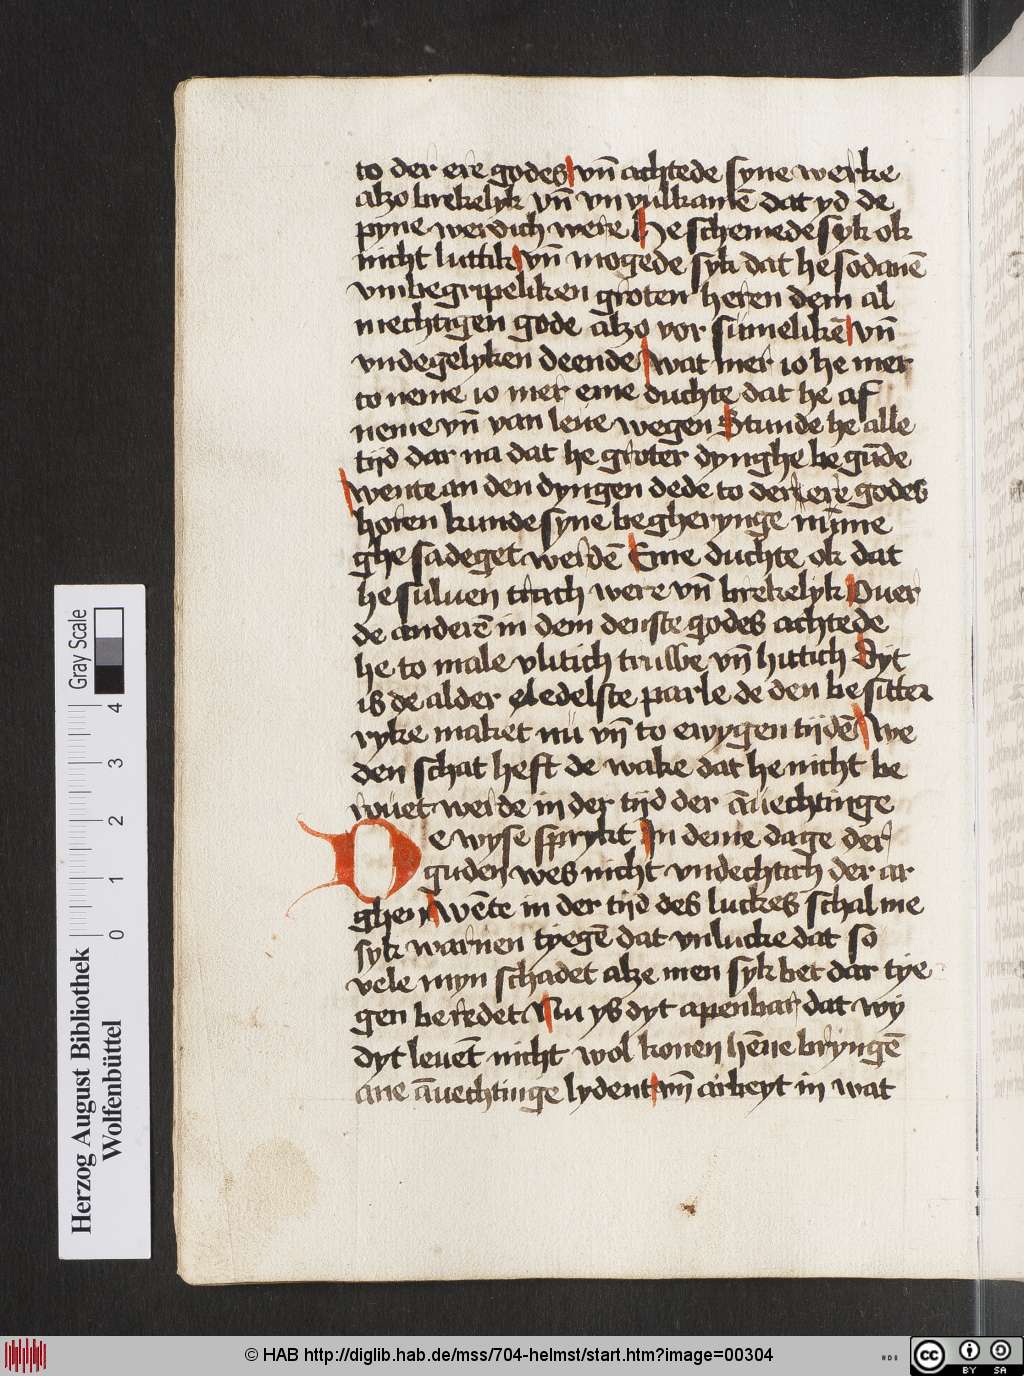 to der ere godes vn̄ achtede syne werke
alzo brekelyk vn̄ vnvulkamē dat yd de
pyne werdich were He schemede syk ok
nicht luttik vn̄ mogede syk dat he sodanē
vmbegripeliken groten heren dem al
mechtigen gode alzo vor sümelikē vn̄
vndegelyken deende wat mer io he mer
to neme io mer eme duchte dat he af
neme vn̄ van leue wegen Stunde he alle
tijd dar na dat he groter dynghe begūde
wente an den dyngen dede to der ere godes
horen kunde syne begherynge nūme
ghesadeget werdē Eme duchte ok dat
he suluen trach were vn̄ brekelyk Ouer
de anderē in dem denste godes achtede
he to male vlitich truwe vn̄ hittich Dyt
is de alder eledelste parle de den besitter
ryke maket nü vn̄ to ewygen tijdē We
den schat heft de wake dat he nicht be
rouet werde in der tijd der āuechtinge
De wyse sprykt In deme dage der
guden wes nicht vndechtich der ar
ghen Wēte in der tijd des luckes schal me
syk warnen tyegē dat vnlucke dat so
vele myn schadet alze men syk bet dar tye
gen beredet Nu ys dyt apenbar dat wy
dyt leuēt nicht wol konen hēne bryngē
ane āuechtinge lydent vn̄ arbeyt in wat
Herzog August Bibliothek
Wolfenbüttel
0 1 2 3 4
Gray Scale
© HAB http://diglib.hab.de/mss/704-helmst/start.htm?image=00304
cc BY SA